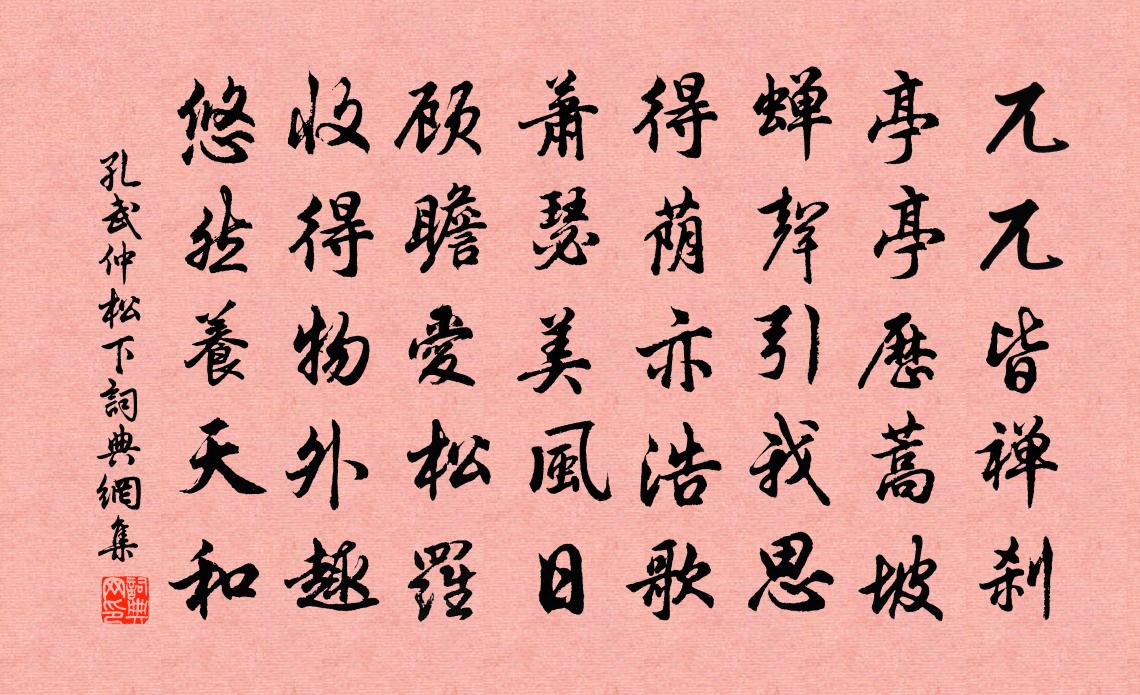 兀兀皆禅刹
亭亭歷蒿坡
蝉聲引我思
得荫亦浩歌
萧瑟美風日
顾瞻愛松羅
收得物外趣
悠然養天和
孔武仲松下詞典網集
詞典网印